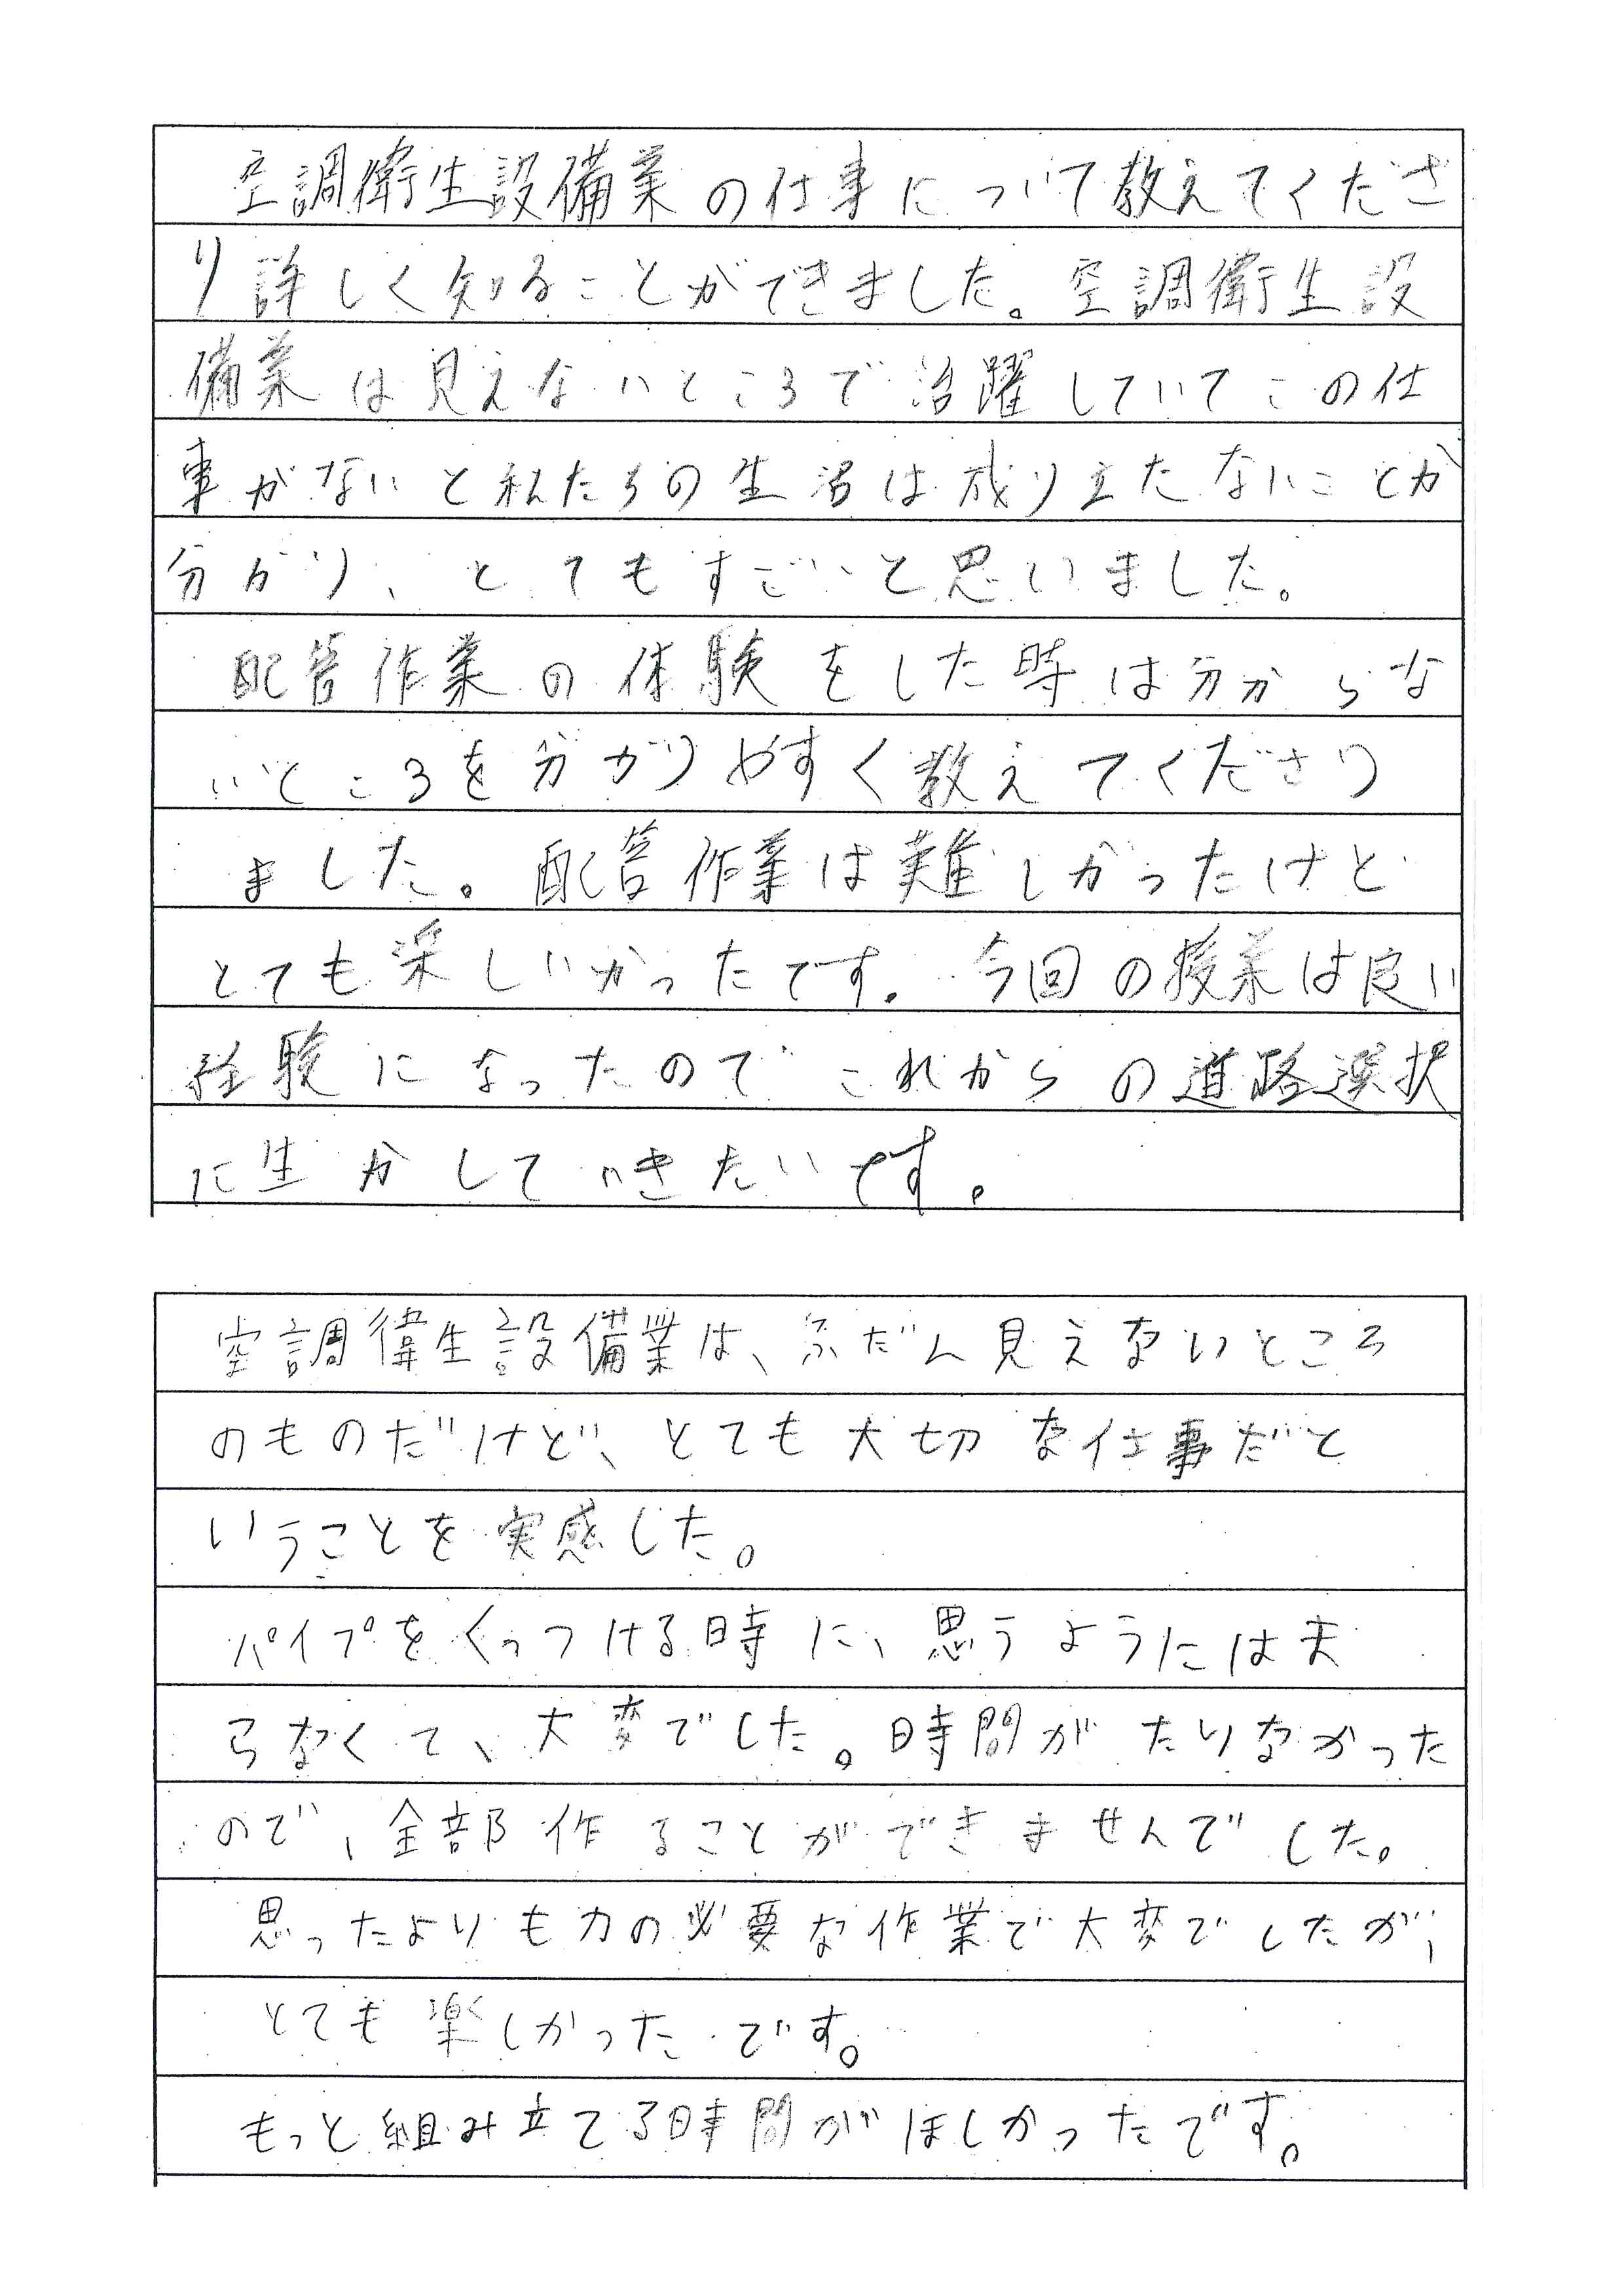 空調衛生設備業の仕事について教えてくださ
り詳しく知ることができました。空調衛生設
備業は見えないところで活躍していてこの仕
事がないと私たちの生活は成り立たないことが
分かり、とてもすごいと思いました。
配管作業の体験をした時は分からな
いところを分かりやすく教えてくださり
ました。配管作業は難しかったけど
とても楽しいかったです。今回の授業は良い
経験になったのでこれからの進路選択
に生かしていきたいです。
空調衛生設備業は、ふだん見えないところ
のものだけど、とても大切な仕事だと
いうことを実感した。
パイプをくっつける時に、思うようには入
らなくて、大変でした。時間がたりなかった
ので、全部作ることができませんでした。
思ったよりも力の必要な作業で大変でしたが、
とても楽しかったです。
もっと組み立てる時間がほしかったです。